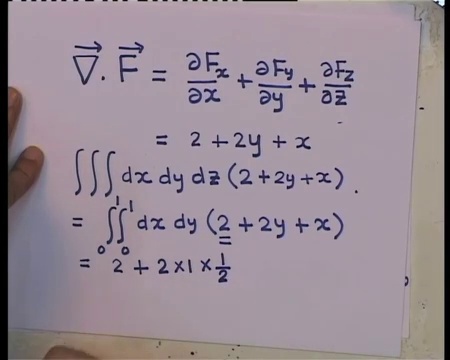 ∇⃗ . F⃗ = ∂Fx/∂x + ∂Fy/∂y + ∂Fz/∂z
= 2 + 2y + x
∫∫∫ dx dy dz (2 + 2y + x).
= ∫₀¹∫₀¹ dx dy (2 + 2y + x)
= 2 + 2×1×1/2